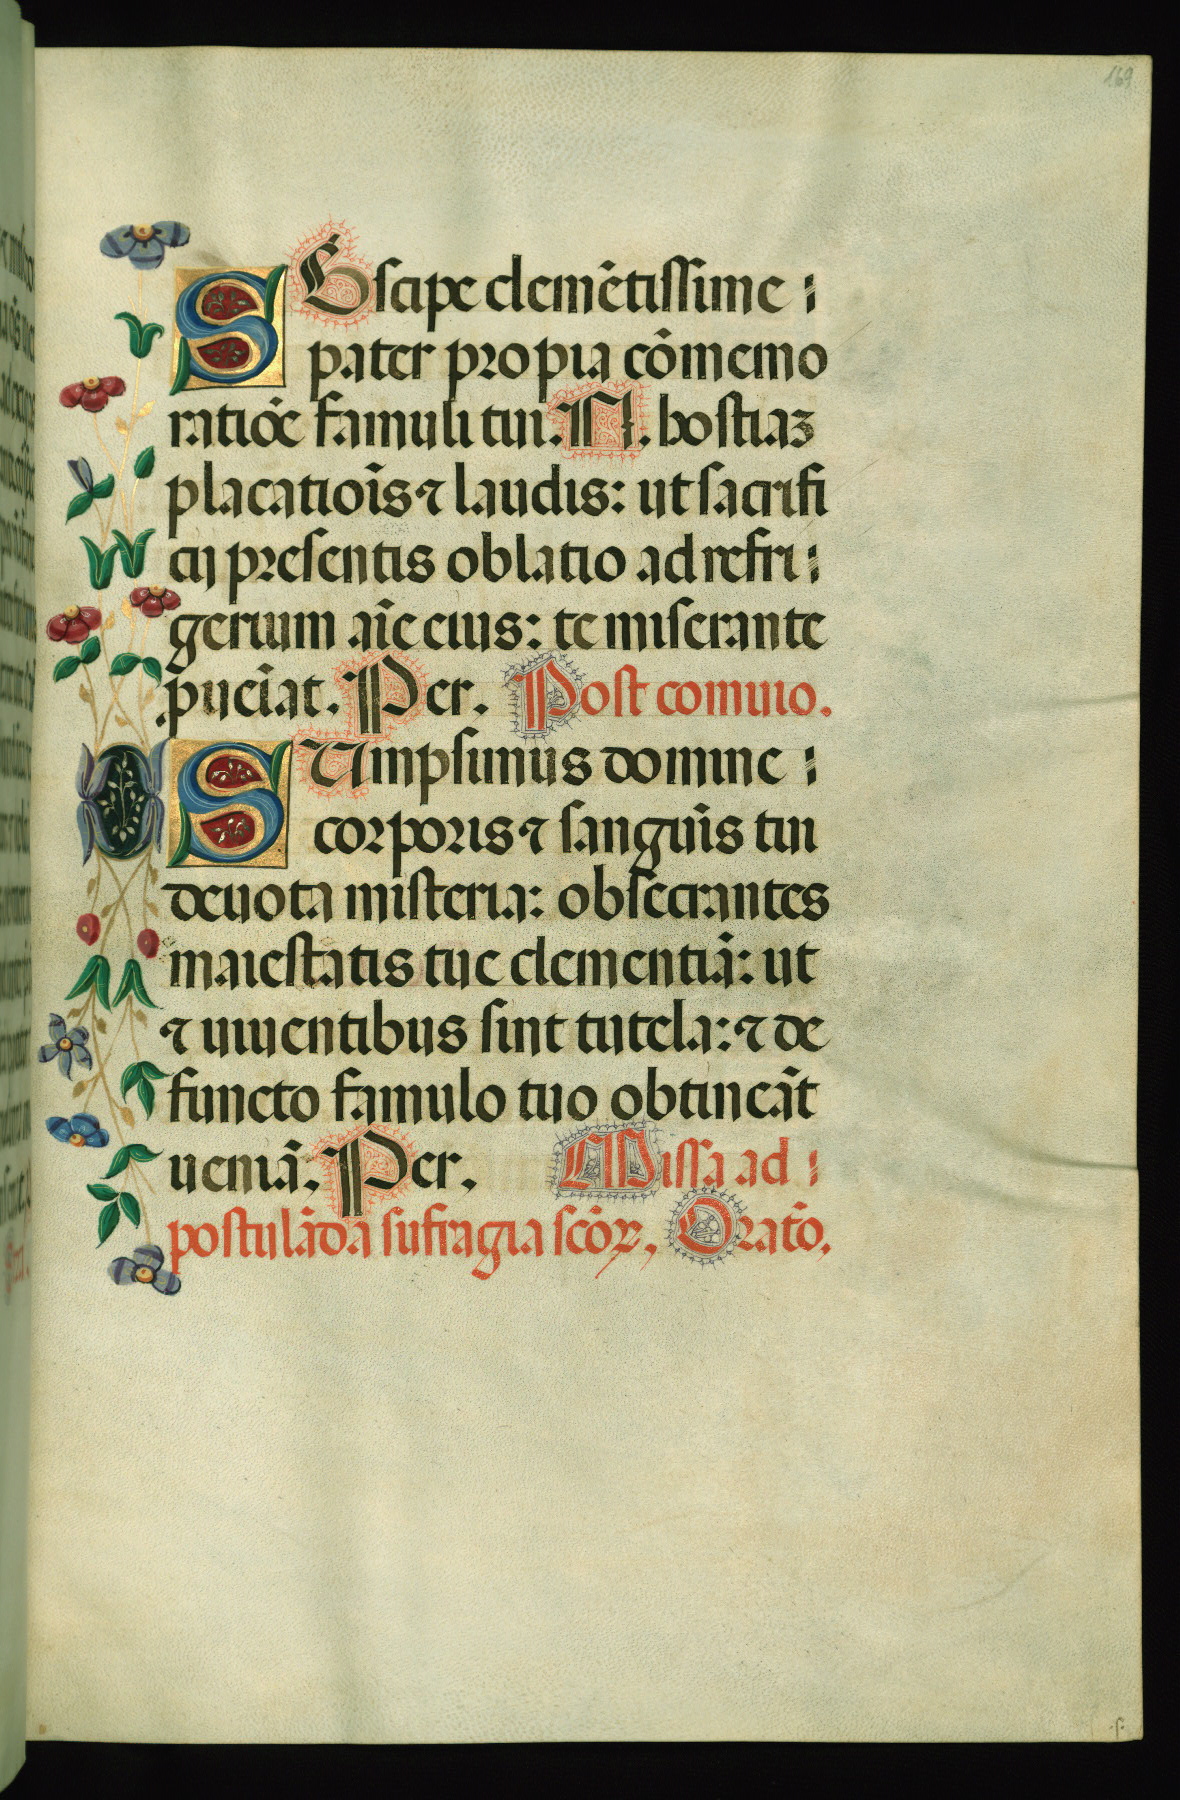 169
SUscipe clemẽtissime :
pater pro pia cõmemo
ratiõe famuli tui. N. hostiaʒ
placatiõis ⁊ laudis: ut sacrifi
cij presentis oblatio ad refri:
gerium aĩe eius: te miserante
ꝑueniat. Per. Post comunio.
SUmpsimus domine :
corporis ⁊ sanguĩs tui
deuota misteria: obsecrantes
maiestatis tue clementiã: ut
⁊ uiuentibus sint tutela: ⁊ de
functo famulo tuo obtineãt
ueniã. Per. Missa ad :
postulãda sufragia scõꝝ. Oratõ.
.f.